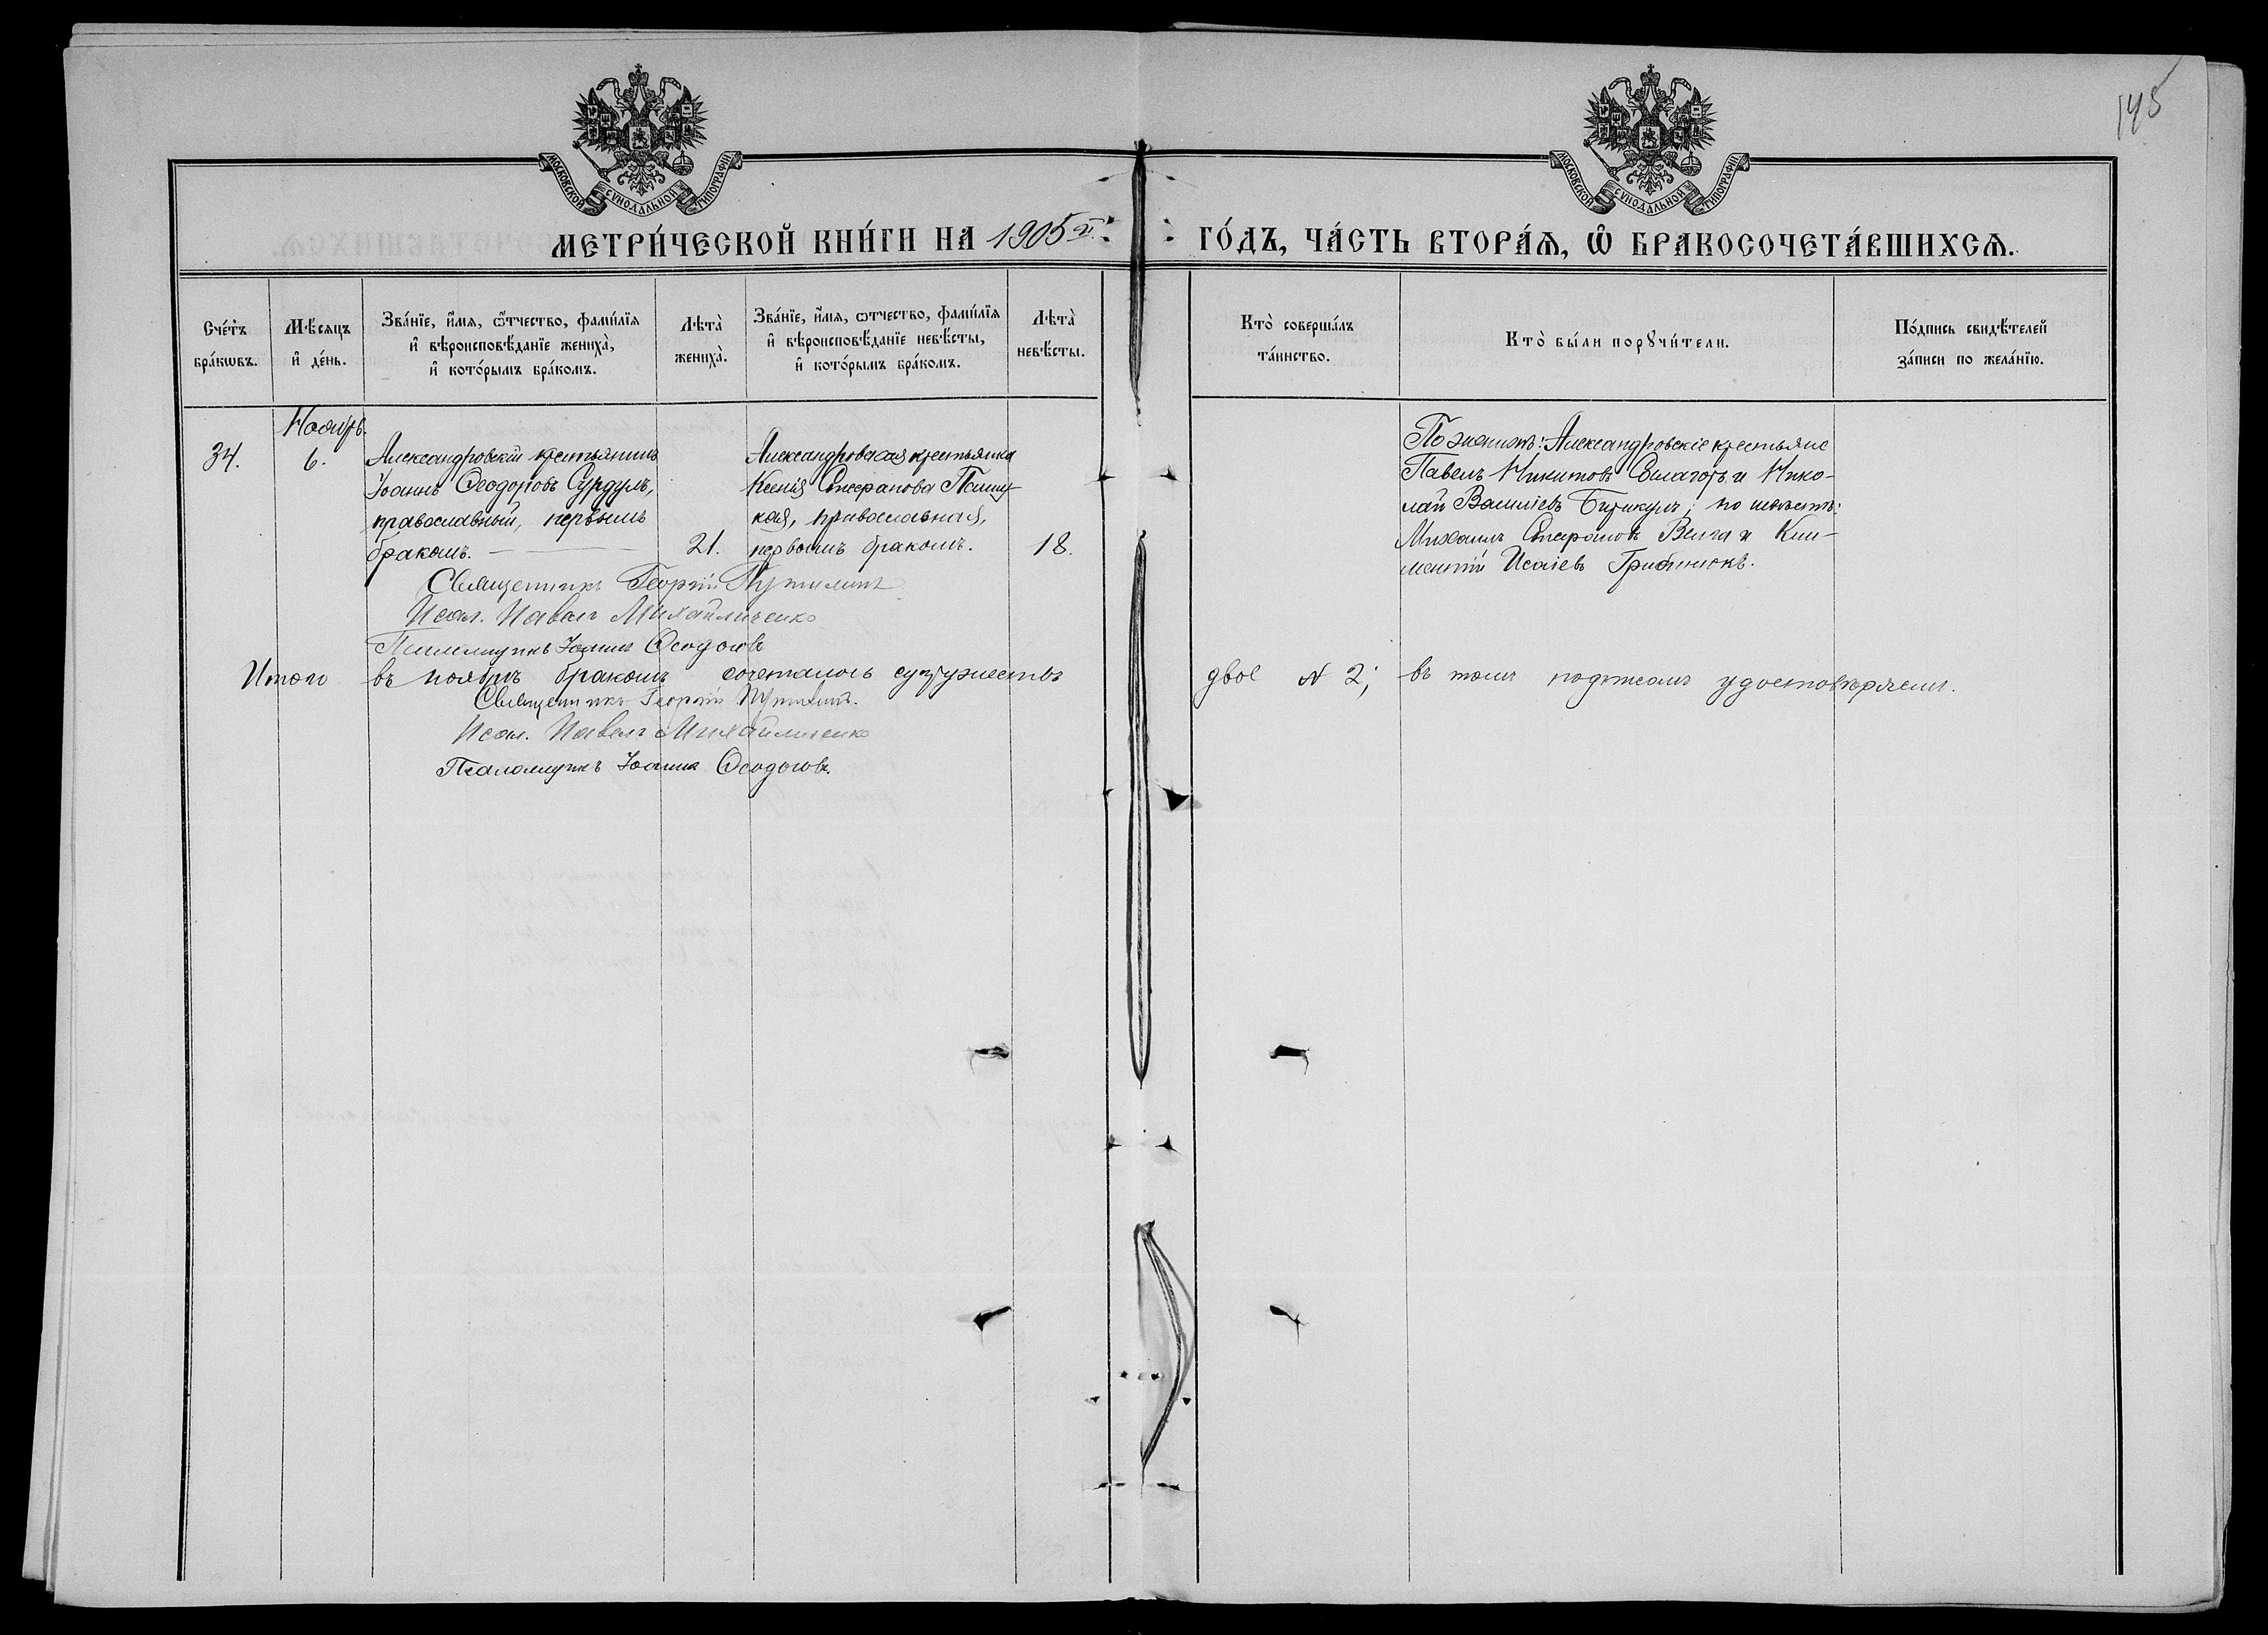 145
МОСКОВСКОЙ СѴНОДАЛЬНОЙ ТИПОГРАФІИ
МОСКОВСКОЙ СѴНОДАЛЬНОЙ ТИПОГРАФІИ
МЕТРИ́ЧЕСКОЙ КНИ́ГИ НА 1905 г. ГО́ДЪ, ЧА́СТЬ ВТОРА́Ѧ, Ѽ БРАКОСОЧЕТА́ВШИХСѦ.
Сче́тъ бра́кѡвъ.
Мѣ́сяцъ и҆ де́нь.
Зва́нїе, и҆́мя, ѻ҆́тчество, фами́лїя
и҆ вѣроисповѣ́данїе жениха̀,
и҆ кото́рымъ бра́комъ.
Лѣта̀ жениха̀.
Зва́нїе, и҆́мя, ѻтчество, фами́лїя
и҆ вѣроисповѣ́данїе невѣ́сты,
и҆ кото́рымъ бра́комъ.
Лѣта̀ невѣ́сты.
Кто̀ соверша́лъ та́инство.
Кто̀ бы́ли порꙋчи́тели.
По́дпись свидѣ́телей за́писи по жела́нїю.
Ноябрь.
34. 6.
Александровскій крестьянинъ
Іоаннъ Ѳеодоровъ Сурдулъ,
православный, первымъ
бракомъ. 21.
Александровская крестьянка
Ксенія Стефанова
православная,
первымъ бракомъ. 18.
По женихѣ: Александровскіе крестьяне
Павелъ Никитовъ и Нико-
лай Василіевъ по невѣстѣ:
Михаилъ Стефановъ и Кли-
ментій Исаіевъ
Священникъ Георгій
Псал. Павелъ Михайличенко
Псаломщикъ Іоаннъ Ѳеодоговъ
Итого въ ноябрѣ бракомъ сочеталось супружествъ двое № 2; въ томъ подписомъ удостовѣряемъ.
Священникъ Георгій
Псал. Павелъ Михайличенко
Псаломщикъ Іоаннъ Ѳеодоговъ.